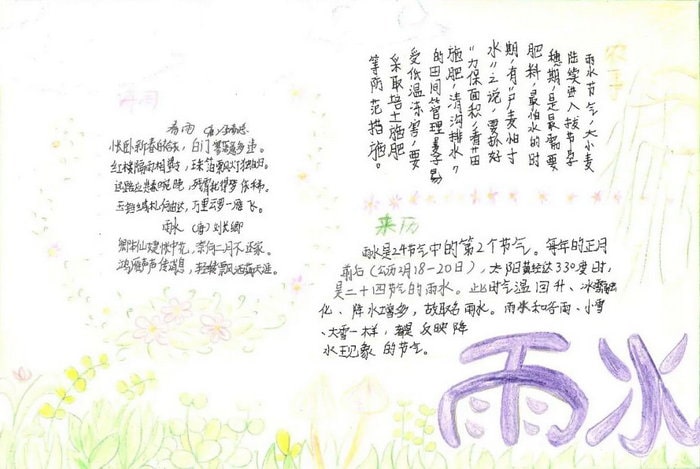 农事
雨水节气,大小麦
陆续进入拔节孕
穗期,是最需要
肥料,最怕水的时
期,有"尺麦怕寸
水"之说,要抓好
"力保面积,看苗
施肥,清沟排水"
的田间管理麦子易
受低温冻害,要
采取培土施肥
等防范措施。
春雨 (唐)李商隐
怅卧新春白袷衣,白门寥落意多违。
红楼隔雨相望冷,珠箔飘灯独自归。
远路应悲春晚,残宵犹得梦依稀。
玉珰缄札何由达,万里云罗一雁飞。
雨水 (唐)刘长卿
怀中花,奈何二月不还家。
鸿雁声声传消息,轻轻飘洒满天涯。
来历
雨水是24节气中的第2个节气。每年的正月
前后(公历2月18-20日),太阳黄经达330度时,
是二十四节气的雨水。此时气温回升、冰雪融
化、降水增多,故取名雨水。雨水和谷雨、小雪
、大雪一样,都是反映降
水现象的节气。
雨水